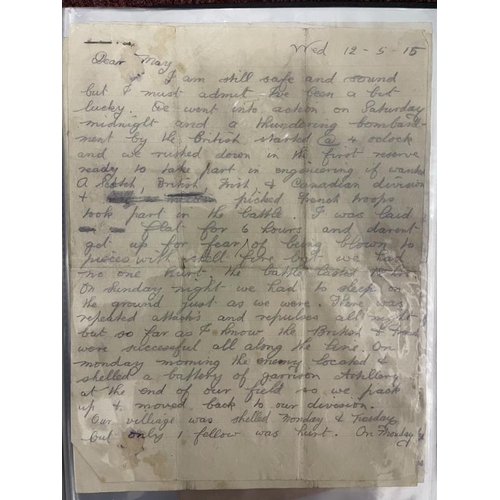 Wed 12-5-15
Dear May
I am still safe and sound
but I must admit I've been a bit
lucky. We went into action on Saturday
midnight and a thundering bombard-
ment by the British started @ 4 oclock
and we rushed down in the first reserve
ready to take part in engineering if wanted
A Scotch, British, Irish & Canadian division
& picked French troops
took part in the battle. I was laid
flat for 6 hours and darent
get up for fear of being blown to
pieces with shell fire but we had
no one hurt. the battle lasted
On Sunday night we had to sleep on
the ground just as we were. There was
repeated attacks and repulses all night
but so far as I know the British &
were successful all along the line. On
monday morning the enemy located &
shelled a battery of garrison Artillery
at the end of our field so we pack
up & moved back to our division.
Our village was shelled Monday & Tuesday
but only 1 fellow was hurt. On Monday